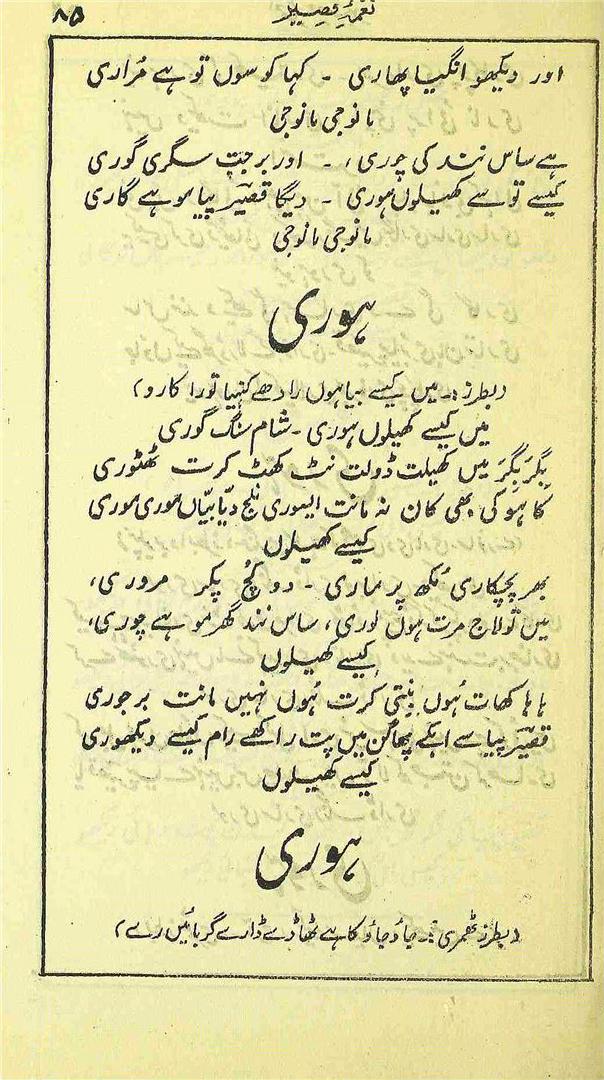 ۸۵ نغمۂ قصیر
اور دیکھو انگیا پھاری ۔ کہا کو سوں تو ہے مُراری
مانوجی مانوجی
ہے ساس نند کی چوری ، ۔ اور برجت سگری گوری
کیسے تو سے کھیلوں ہوری ۔ دیگا قصیرؔ پیا موہے گاری
مانوجی مانوجی
ہوری
(بطرز :۔ میں کیسے بیاہوں رادھے کنہیا تورا کارو)
میں کیسے کھیلوں ہوری ۔ شام سنگ گوری
بِگَر بِگَر میں کھیلت ڈولت نٹ کھٹ کرت ٹھٹوری
کاہو کی بھی کان نہ مانت ایسوری نلج دیّا بیّاں موری موری
کیسے کھیلوں
بھر پچپکاری مُکھ پر ماری ۔ دو کُچ پکر مروری ،
میں تو لاج مرت ہوں لوری ، ساس نند گھر موہے چوری ،
کیسے کھیلوں
ہا ہا کھات ہُوں بِنتی کرت ہُوں نہیں مانت برجوری
قصیرؔ پیا سے ابکے پھاگُن میں پت راکھے رام کیسے دیکھوری
کیسے کھیلوں
ہوری
(بطرز ٹھمری :۔ جاؤ جاؤ کا ہے ٹھاڈے ڈارے گر بائیں رے)